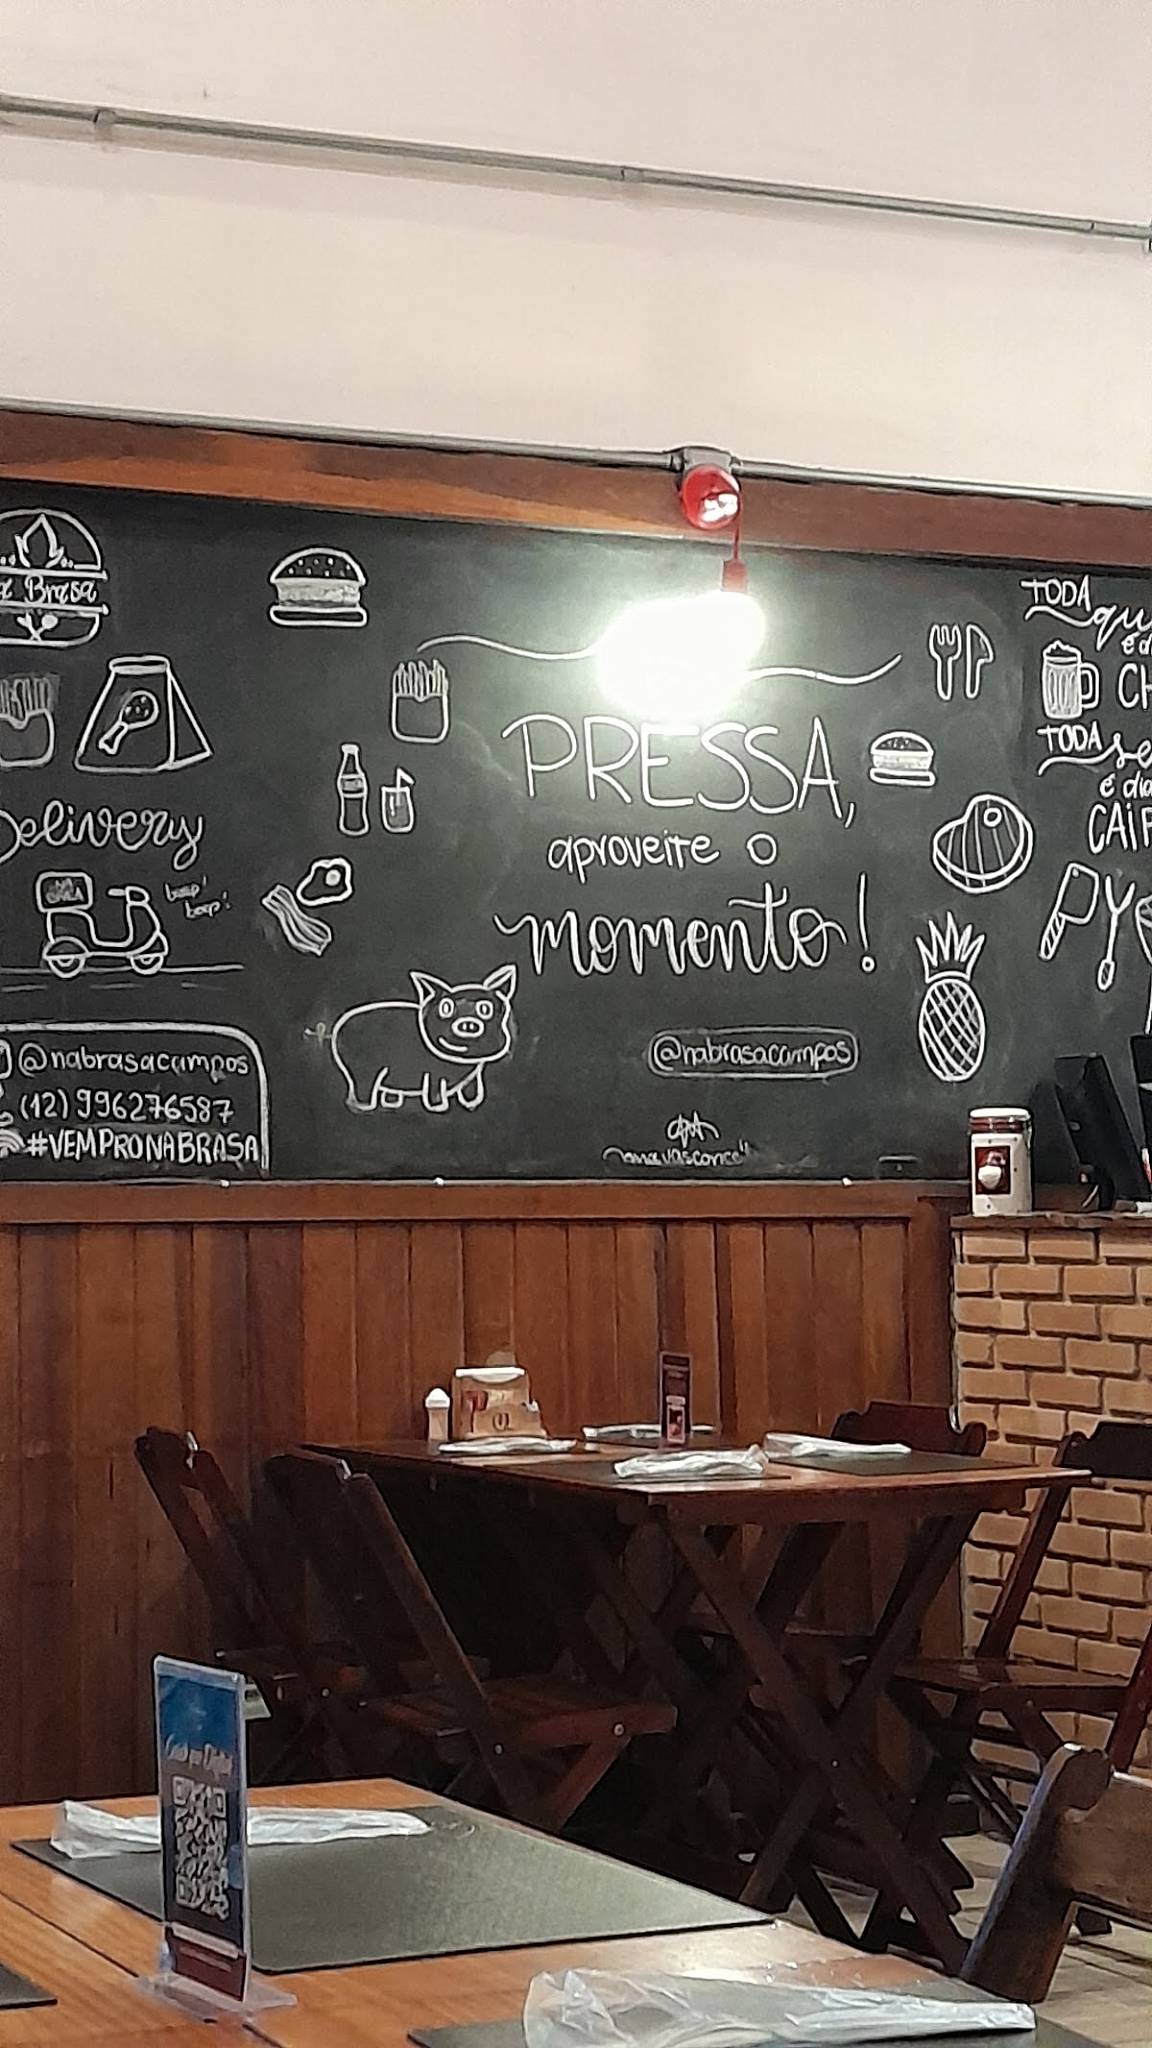 Brasa
Delivery
beep!
beep!
@nabrasacampos
(12) 996276587
#VEMPRONABRASA
PRESSA,
aproveite o
momento!
@nabrasacampos
TODA
é d
CH
TODA
é dia
CAIP